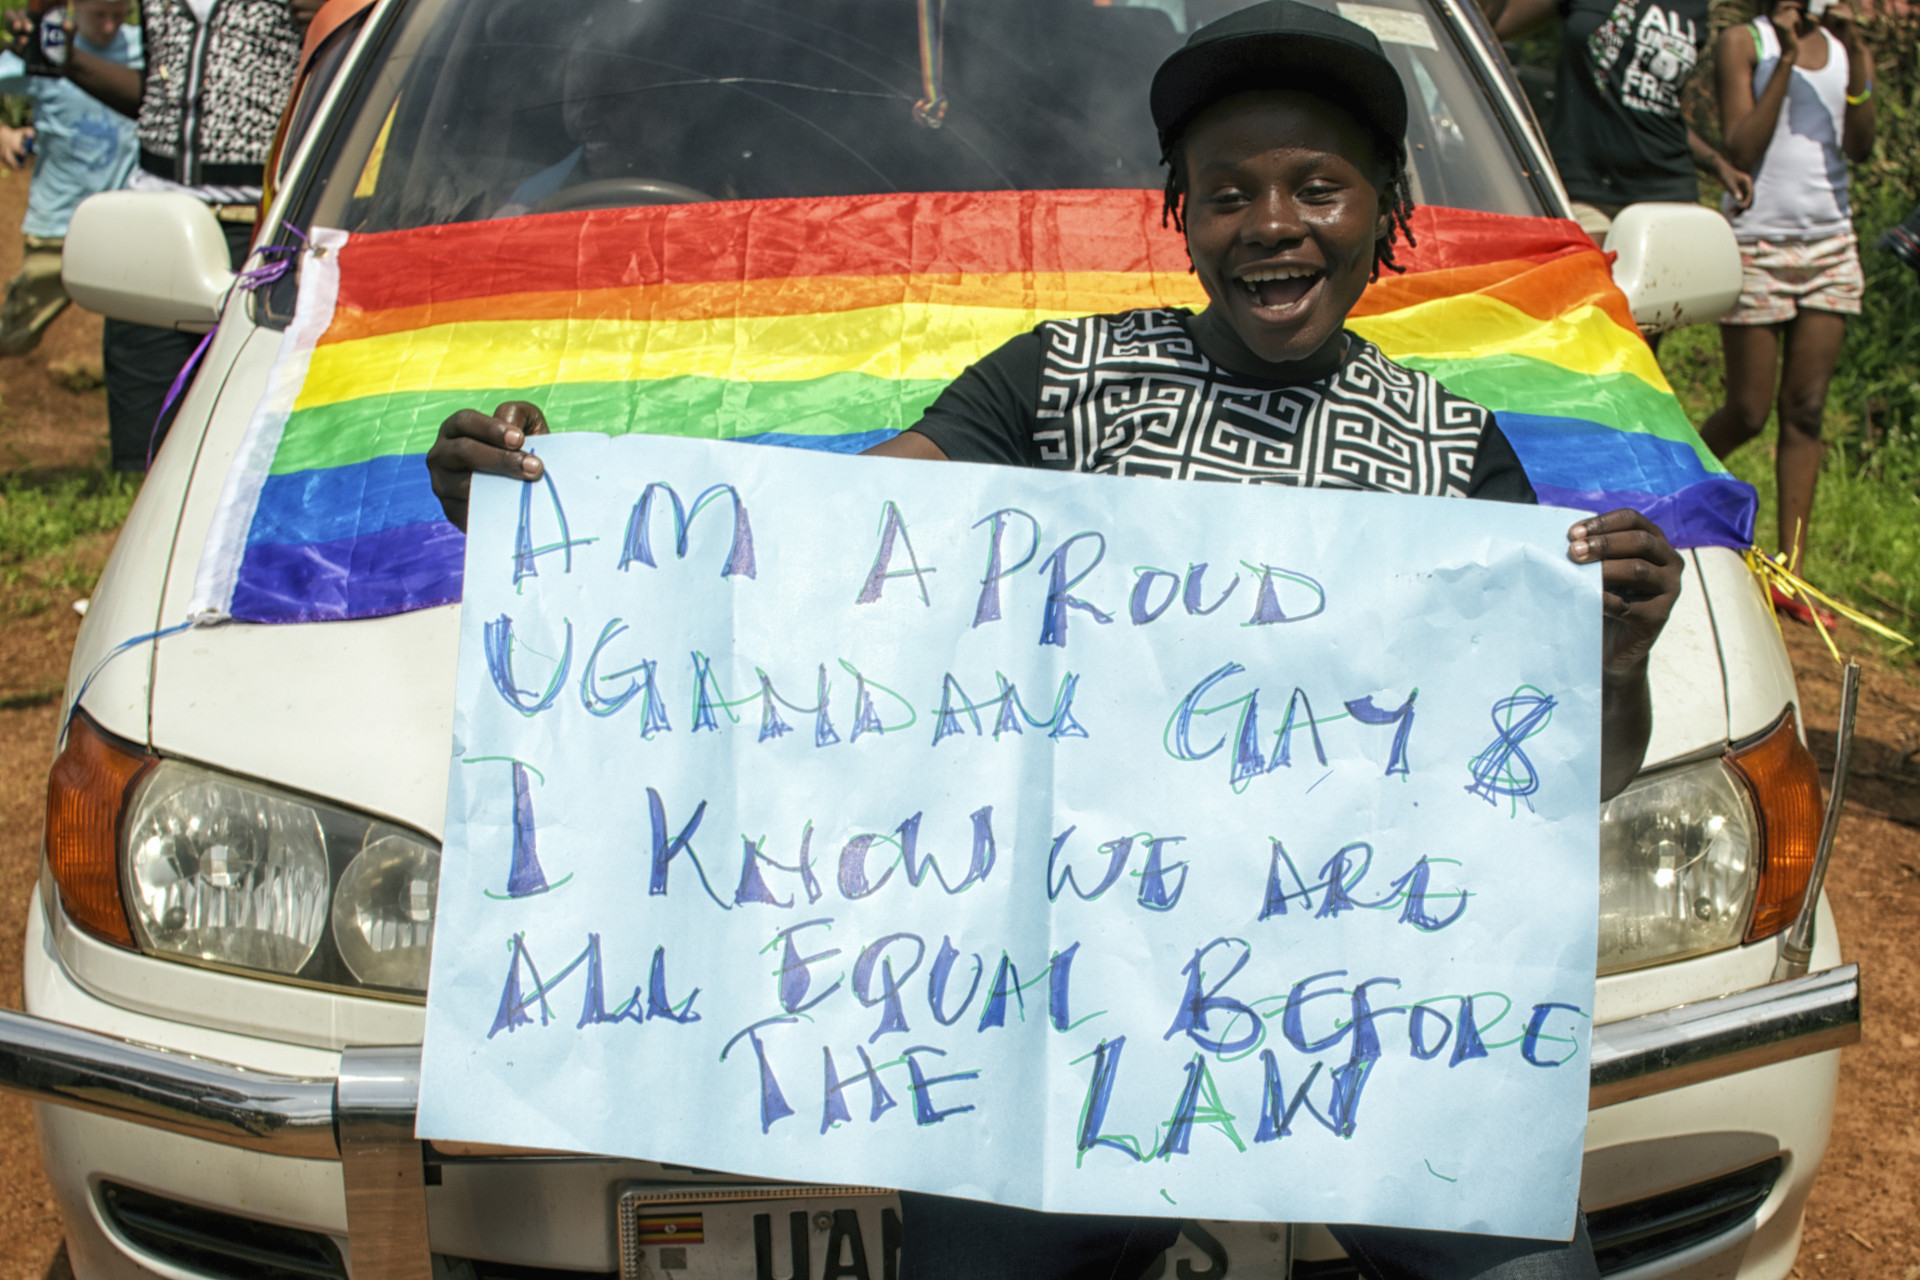 AM A PROUD
UGANDAN GAY &
I KNOW WE ARE
ALL EQUAL BEFORE
THE LAW
ALL
UAA
S